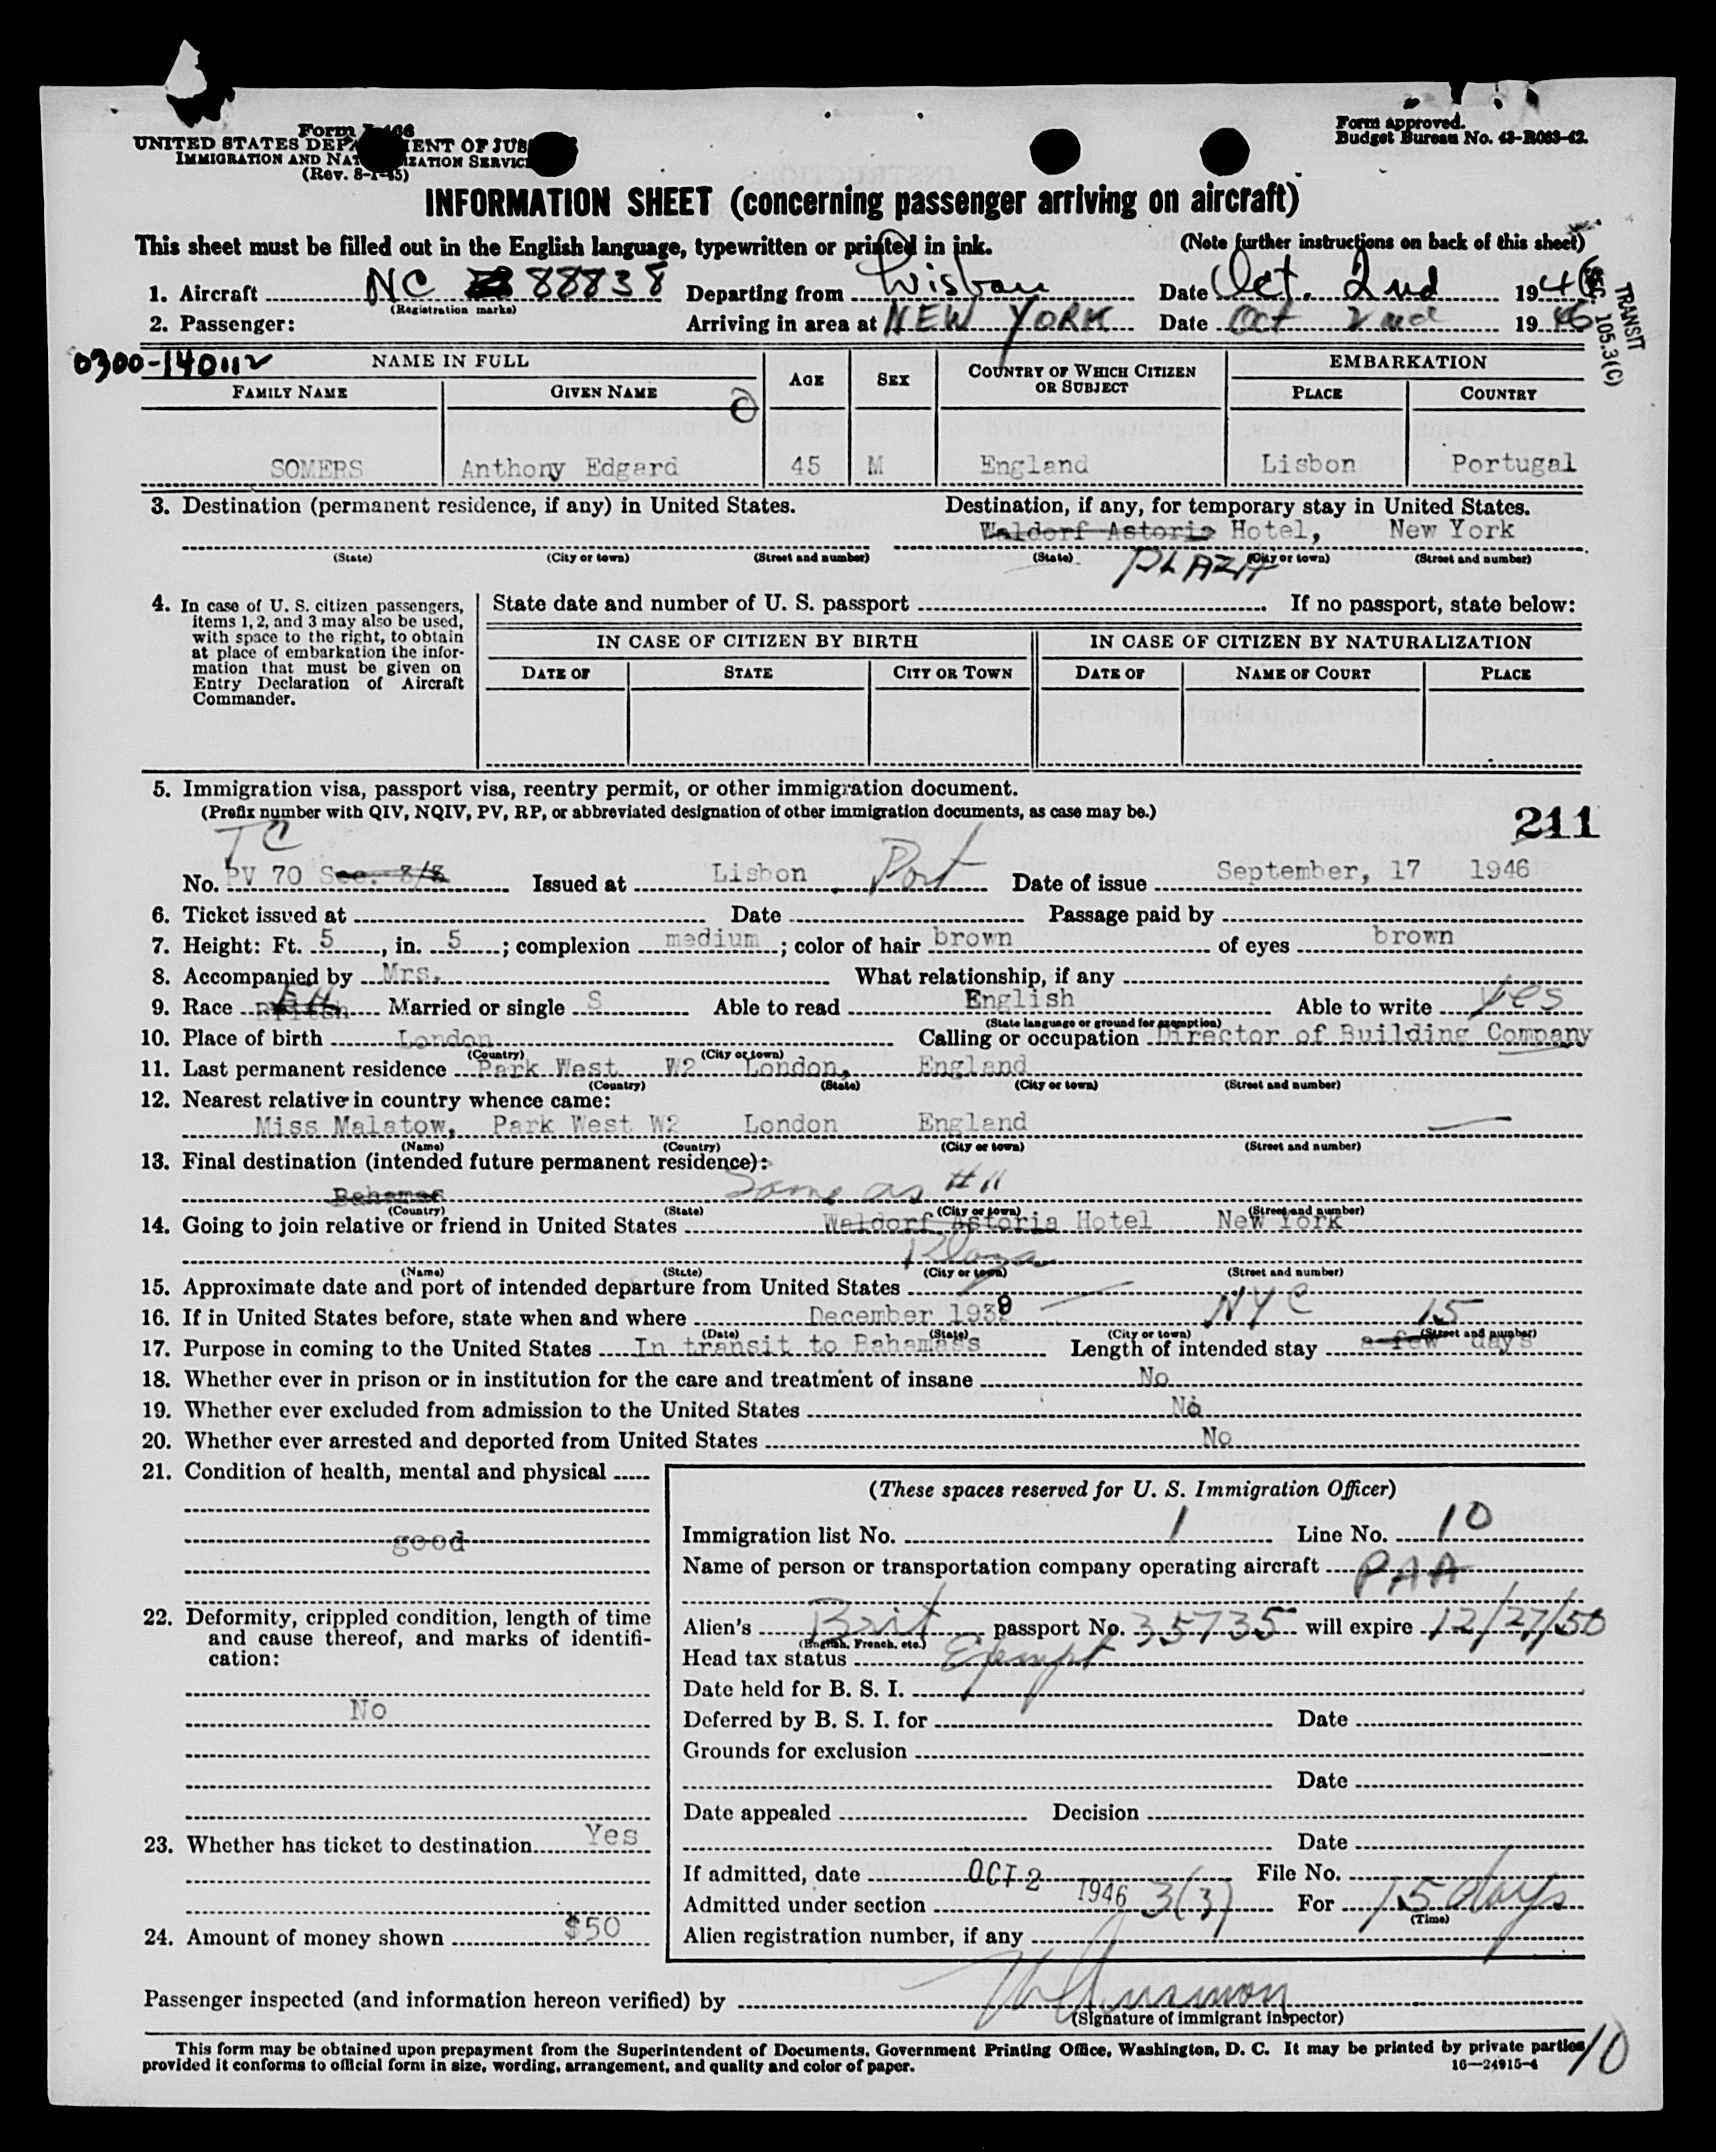 Form I-466
UNITED STATES DEPARTMENT OF JUSTICE
IMMIGRATION AND NATURALIZATION SERVICE
(Rev. 8-1-45)
Form approved.
Budget Bureau No. 43-R083-42.
INFORMATION SHEET (concerning passenger arriving on aircraft)
This sheet must be filled out in the English language, typewritten or printed in ink. (Note further instructions on back of this sheet)
1. Aircraft NC 88838 Departing from Lisbon Date Oct. 2nd 1946
(Registration marks)
2. Passenger: Arriving in area at NEW YORK Date Oct 2nd 1946
TRANSIT
SEC. 105.3(C)
0300-140112
NAME IN FULL AGE SEX COUNTRY OF WHICH CITIZEN OR SUBJECT EMBARKATION
FAMILY NAME GIVEN NAME PLACE COUNTRY
SOMERS Anthony Edgard 45 M England Lisbon Portugal
3. Destination (permanent residence, if any) in United States. Destination, if any, for temporary stay in United States.
Waldorf Astoria Hotel, New York
(State) (City or town) (Street and number) (State) (City or town) (Street and number)
PLAZA
4. In case of U. S. citizen passengers, items 1, 2, and 3 may also be used, with space to the right, to obtain at place of embarkation the information that must be given on Entry Declaration of Aircraft Commander.
State date and number of U. S. passport If no passport, state below:
IN CASE OF CITIZEN BY BIRTH IN CASE OF CITIZEN BY NATURALIZATION
DATE OF STATE CITY OR TOWN DATE OF NAME OF COURT PLACE
5. Immigration visa, passport visa, reentry permit, or other immigration document.
(Prefix number with QIV, NQIV, PV, RP, or abbreviated designation of other immigration documents, as case may be.)
211
TC
No. PV 70 Sec. 3/8 Issued at Lisbon Port Date of issue September, 17 1946
6. Ticket issued at Date Passage paid by
7. Height: Ft. 5, in. 5; complexion medium; color of hair brown of eyes brown
8. Accompanied by Mrs. What relationship, if any
9. Race British Married or single S Able to read English Able to write yes
(State language or ground for exemption)
10. Place of birth London Calling or occupation Director of Building Company
(Country) (City or town)
11. Last permanent residence Park West W2 London, England
(Country) (State) (City or town) (Street and number)
12. Nearest relative in country whence came:
Miss Malatow, Park West W2 London England
(Name) (Country) (City or town) (Street and number)
13. Final destination (intended future permanent residence):
Bahamas Same as #11
(Country) (State) (City or town) (Street and number)
14. Going to join relative or friend in United States Waldorf Astoria Hotel New York
Plaza
(Name) (State) (City or town) (Street and number)
15. Approximate date and port of intended departure from United States
16. If in United States before, state when and where December 1939 NYC
(Date) (State) (City or town) (Street and number)
15
17. Purpose in coming to the United States In transit to Bahamass Length of intended stay a few days
18. Whether ever in prison or in institution for the care and treatment of insane No
19. Whether ever excluded from admission to the United States No
20. Whether ever arrested and deported from United States No
21. Condition of health, mental and physical
good
22. Deformity, crippled condition, length of time and cause thereof, and marks of identification:
No
23. Whether has ticket to destination Yes
24. Amount of money shown $50
(These spaces reserved for U. S. Immigration Officer)
Immigration list No. 1 Line No. 10
Name of person or transportation company operating aircraft PAA
Alien's Brit passport No. 35735 will expire 12/27/50
(English, French, etc.)
Head tax status Exempt
Date held for B. S. I.
Deferred by B. S. I. for Date
Grounds for exclusion
Date
Date appealed Decision
Date
If admitted, date OCT 2 1946 File No.
Admitted under section 3(3) For 15 days
(Time)
Alien registration number, if any
Passenger inspected (and information hereon verified) by
(Signature of immigrant inspector)
This form may be obtained upon prepayment from the Superintendent of Documents, Government Printing Office, Washington, D. C. It may be printed by private parties
provided it conforms to official form in size, wording, arrangement, and quality and color of paper. 16—24915-4
10